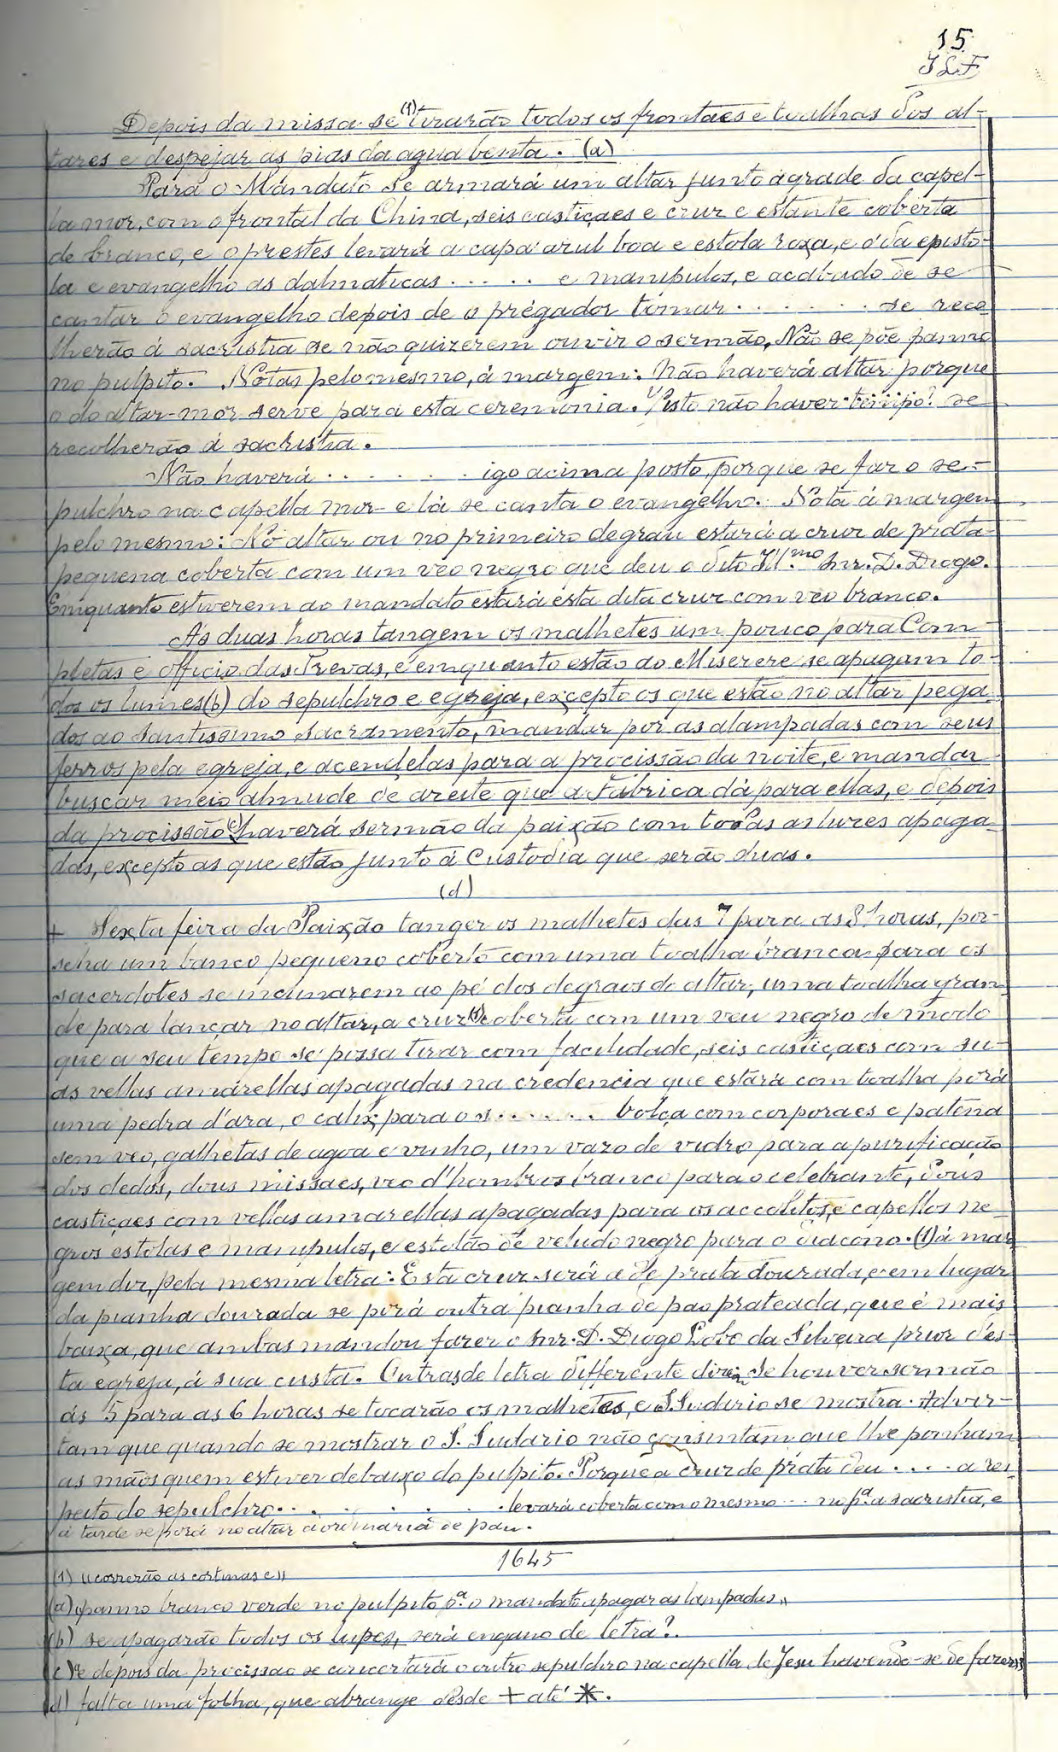 15
J L F
Depois da missa se (1) tirarão todos os frontaes e toalhas dos al-
tares e despejar as pias da agua benta. (a)
Para o Mandato se armará um altar junto á grade da capel-
la mor, com o frontal da China, seis castiçaes e cruz e estante coberta
de branco, e o prestes levará a capa azul boa e estola roxa, e o da episto-
la e evangelho as dalmaticas . . . . . e manipulos, e acabado de se
cantar o evangelho depois de o prégador tomar . . . . . . . se reco
lherão á sacristia se não quizerem ouvir o sermão. Não se põe panno
no pulpito. Notas pelo mesmo, á margem: Não haverá altar porque
o do altar-mor serve para esta ceremonia. Visto não haver tempo? se
recolherão á sacristia.
Não haverá . . . . . . . igo acima posto, porque se faz o se-
pulchro na capella mor e lá se canta o evangelho. Nota á margem
pelo mesmo: No altar ou no primeiro degrau estará a cruz de prata
pequena coberta com um veo negro que deu o dito Ill.mo Snr. D. Diogo.
Emquanto estiverem ao mandato estará esta dita cruz com véo branco.
As duas horas tangem os malhetes um pouco para Com-
pletas e officio das Trevas, e emquanto estão ao Miserere se apagam to-
dos os lumes (b) do sepulchro e egreja, excepto os que estão no altar pega-
dos ao Santissimo Sacramento, mandar por as alampadas com seus
ferros pela egreja, e acendelas para a procissão da noite, e mandar
buscar meio almude de azeite que a Fabrica dá para ellas, e depois
da procissão (c) haverá sermão da paixão com todas as luzes apaga-
das, excepto as que estão junto á Custodia que serão duas.
(d)
+ Sexta feira da Paixão tanger os malhetes das 7 para as 8 horas, por-
se ha um banco pequeno coberto com uma toalha branca para os
sacerdotes se inclinarem ao pé dos degraos do altar, uma toalha gran-
de para lançar no altar, a cruz (1) coberta com um veu negro de modo
que a seu tempo se possa tirar com facilidade, seis castiçaes com su-
as vellas amarellas apagadas na credencia que estará com toalha porá
uma pedra d'ara, o calix para o s . . . . . . bolça com corporaes e patena
sem veo, galhetas de agoa e vinho, um vazo de vidro para a purificação
dos dedos, dous missaes, veo d'hombros branco para o celebrante, dous
castiçaes com vellas amarellas apagadas para os accolitos, e capellos ne-
gros estolas e manipulos, e estolão de veludo negro para o diacono. (1) á mar
gem diz, pela mesma letra: Esta cruz será a de prata dourada, e em lugar
da pianha dourada se porá outra pianha de pao prateada, que é mais
baixa, que ambas mandou fazer o Snr. D. Diogo Lobo da Silveira prior d'es-
ta egreja, á sua custa. Outras de letra differente dizem Se houver sermão
ás 5 para as 6 horas se tocarão os malhetes, e S. Sudario se mostra. Adver-
tam que quando se mostrar o S. Sudario não consintam que lhe ponham
as mãos quem estiver debaixo do pulpito. Porque a cruz de prata deu . . . . a res-
peito do sepulchro . . . . . . . . levará coberta com o mesmo . . . n p.a a sacristia, e
á tarde se porá no altar a ordinaria de pau.
1645
(1) "correrão as cortinas e"
(a) "panno branco verde no pulpito p.a o mandato apagar as lampadas"
(b) se apagarão todos os lupes, será engano de letra?.
(c) "e depois da procissão se concertará o outro sepulchro na capella de Jesu havendo-se de fazer"
(d) falta uma folha, que abrange desde + até *.